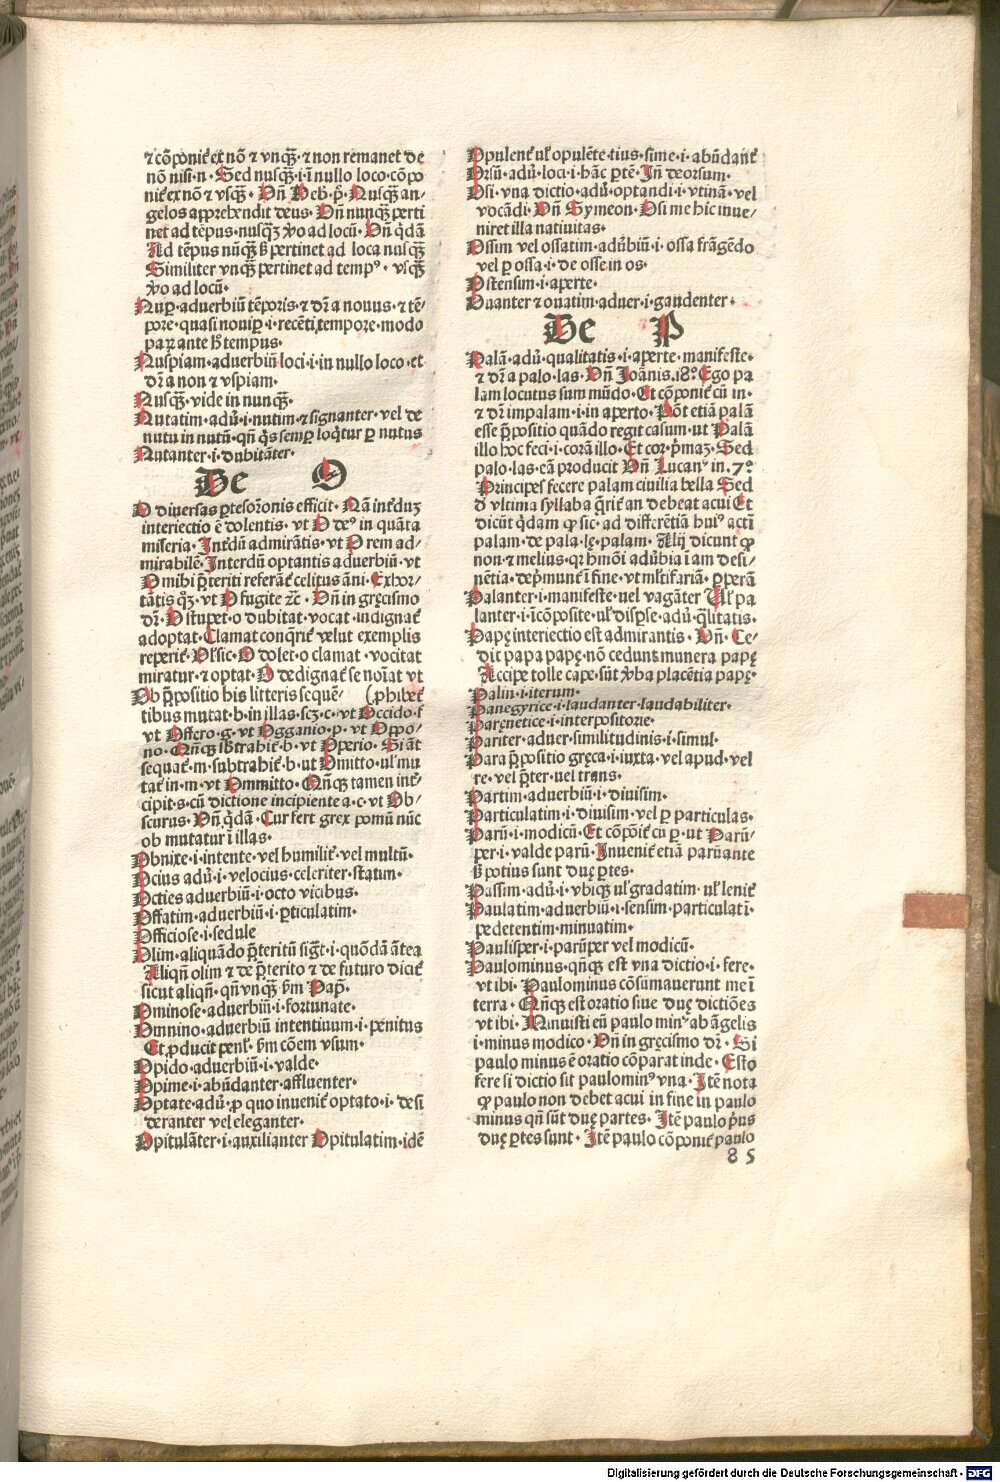 ⁊ cōponit̄ ex nō ⁊ vnqȝ̄·⁊ non remanet de
nō nisi·n· Sed nusqȝ̄·i·ī nullo loco·cōpo
nit̄ ex nō ⁊ vsqȝ̄· Vn̄ Heb·p̄· Nusqȝ̄ an-
gelos apprehendit deus· Vn̄ nunqȝ̄ perti
net ad tēpus·nusqȝ̄ ꝟo ad locū· Vn̄ q̄dā
Ad tēpus nūqȝ̄ ß pertinet ad loca nusqȝ̄
Similiter vnqȝ̄ pertinet ad tempꝰ· vsqȝ̄
ꝟo ad locū·
Nuꝑ·aduerbiū tēporis·⁊ dr̄ a nouus·⁊ tē-
pore·quasi nouiꝑ·i·recēti tempore·modo
paꝝ ante h̄ tempus·
Nuspiam·aduerbiū loci·i·in nullo loco·et
dr̄ a non ⁊ vspiam·
Nusqȝ̄·vide in nunqȝ̄·
Nutatim·adū·i·nutim·⁊ signanter·vel de
nutu in nutū·qn̄ q̄s semꝑ loq̄tur ꝑ nutus
Nutanter·i·dubitāter·
De O
O diuersas ꝑtes orōnis efficit· Nā int̄dūȝ
interiectio ē dolentis· vt O deꝰ in quāta
miseria· Int̄dū admirātis·vt O rem ad-
mirabilē· Interdū optantis aduerbiū·vt
O mihi p̄teriti referat̄ celitus āni· Exhor-
tātis qȝ·vt O fugite ⁊c̄· Vn̄ in gręcismo
dr̄· O stupet·o dubitat·vocat·indignat̄
adoptat· Clamat conqrit̄ velut exemplis
reperit̄· Uſsic· O dolet·o clamat·vocitat
miratur·⁊ optat· O dedignat̄ se noīat vt
Ob p̄positio his litteris sequē- (ꝓhibet̄
tibus mutat·b·in illas·scȝ·c·vt Occido·f
vt Offero·g·vt Ogganio·p·vt Oppo-
no· Qn̄qȝ sbtrahit̄·b·vt Operio· Si āt
sequat̄·m·subtrahit̄·b·ut Omitto·uł mu
tat̄ in·m·vt Ommitto· Qn̄qȝ tamen int̄-
cipit·s·cū dictione incipiente a·c·vt Ob-
scurus· Vn̄ q̄dā· Cur fert grex pomū nūc
ob mutatur ī illas·
Obnixe·i·intente·vel humilit̄·vel multū·
Ocius adū·i·velocius·celeriter·statim·
Octies aduerbiū·i·octo vicibus·
Offatim·aduerbiū·i·ꝑticulatim·
Officiose·i·sedule
Olim·aliquādo p̄teritū sigt̄·i·quōdā ātea
Aliqn̄ olim ⁊ de p̄terito ⁊ de futuro dicit̄
sicut aliqn̄·qn̄ vnqȝ̄ ẜm Pap̄·
Ominose·aduerbiū·i·fortunate·
Omnino·aduerbiū intentiuum·i·penitus
Et ꝓducit penł·ẜm cōem vsum·
Opido·aduerbiū·i·valde·
Opime·i·abūdanter·affluenter·
Optate·adū·ꝓ quo inuenit̄ optato·i·desi
deranter vel eleganter·
Opitulāter·i·auxilianter Opitulatim·idē
Opulent̄ uł opulēte·tius·sime·i·abūdant̄
Orsū·adū·loci·i·hāc ꝑtē· Iñ deorsum·
Osi·vna dictio·adū·optandi·i·vtinā·vel
vocādi· Vn̄ Symeon· Osi me hic inue-
niret illa natiuitas·
Ossim vel ossatim·adūbiū·i·ossa frāgēdo
vel ꝑ ossa·i·de osse in os·
Ostensim·i·aperte·
Ouanter ⁊ ouatim·aduer·i·gaudenter·
De P
Palā·adū·qualitatis·i·aperte·manifeste·
⁊ dr̄ a palo·las· Vn̄ Joānis·18°· Ego pa
lam locutus sum mūdo· Et cōponit̄ cū in·
⁊ dr̄ impalam·i·in aperto· Pōt etiā palā
esse p̄positio quādo regit casum·ut Palā
illo hoc feci·i·corā illo· Et cor·p̄maȝ· Sed
palo·las·eā producit Vn̄ Lucanꝰ in·7°
Principes fecere palam ciuilia bella Sed
d̄ vltima syllaba q̄rit̄ an debeat acui Et
dicūt q̄dam ꝙ sic·ad differētiā huiꝰ acti
palam·de pala·lę·palam· Alij dicunt ꝙ
non·⁊ melius·qꝛ hmōi adūbia ī am desi-
nētia·dep̄munt̄ ī fine·vt mltifariā· ꝑperā
Palanter·i·manifeste·uel vagāter Uł pa
lanter·i·īcōposite·uł disꝑse·adū·q̄litatis·
Papę interiectio est admirantis· Vn̄· Ce-
dit papa papę·nō cedunt munera papę
Accipe tolle cape·sūt ꝟba placētia papę·
Palin·i·iterum·
Panegyrice·i·laudanter·laudabiliter·
Paręnetice·i·interpositorie·
Pariter·aduer·similitudinis·i·simul·
Para p̄positio gręca·i·iuxta·vel apud·vel
re·vel p̄ter·uel trans·
Partim·aduerbiū·i·diuisim·
Particulatim·i·diuisim·vel ꝑ particulas·
Parū·i·modicū· Et cōpōit̄ cū ꝑ·ut Parū-
ꝑer·i·valde parū· Inuenit̄ etiā parū ante
ß potius sunt duę ꝑtes·
Passim·adū·i·vbiqȝ uł gradatim·uł lenit̄
Paulatim·aduerbiū·i·sensim·particulatī·
pedetentim·minuatim·
Paulisper·i·parūꝑer vel modicū·
Paulominus·qn̄qȝ est vna dictio·i·fere·
vt ibi· Paulominus cōsūmauerunt me ī
terra· Qn̄qȝ est oratio siue duę dictiōes
vt ibi· Minuisti eū paulo minꝰ ab āgelis
i·minus modico· Vn̄ in gręcismo dr̄· Si
paulo minus ē oratio cōparat inde· Esto
fere si dictio sit paulominꝰ vna· Itē nota
ꝙ paulo non debet acui in fine in paulo
minus qn̄ sūt duę partes· Itē paulo p̄us
duę ꝑtes sunt· Itē paulo cōponit̄ paulo
85
Digitalisierung gefördert durch die Deutsche Forschungsgemeinschaft · DFG